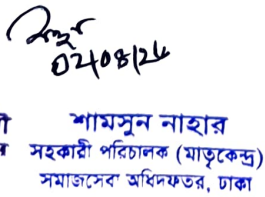 02/08/24
শামসুন নাহার
সহকারী পরিচালক (মাতৃকেন্দ্র)
সমাজসেবা অধিদফতর, ঢাকা